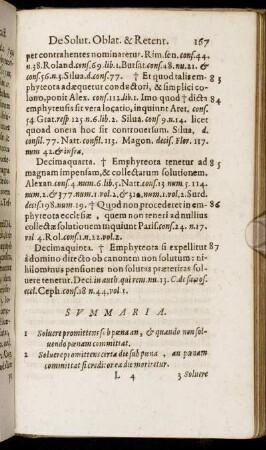 De Solut. Oblat. & Retent. 167
per contrahentes nominaretur. Rim. sen. conf. 44.
n. 38. Roland. conf. 69. lib. 1. Bursat. conf. 48. nu. 21. &
conf. 56. n. 5. Silua. d. conf. 77. † Et quod talis em- 83
phyteota adæquetur conductori, & simplici co-
lono, ponit Alex. conf. 112. lib. 1. Imo quod † dicta 84
emphyteusis sit vera locatio, inquiunt Aret. conf.
74. Grat. resp. 125 n. 6. lib. 2. Silua. conf. 9. n. 14. licet
quoad onera hoc sit controuersum. Silua, d.
consil. 77. Natt. consil. 115. Magon. decis. Flor. 117.
num 42. & infra.
Decimaquarta. † Emphyteota tenetur ad 85
magnam impensam, & collectarum solutionem.
Alexan. conf. 4. num. 6. lib. 5. Natt. conf. 13 num 5. 114.
num. 2. & 377. num. 1. vol. 2. & num. 1. vol. 2. Surd.
decis. 198. num. 19. † Quod non procederet in em- 86
phyteota ecclesiæ, quem non teneri ad nullius
collectæ solutionem inquiunt Paris. conf. 24. n. 17.
vol 4. Rol. conf. 1. n. 12. vol. 2.
Decimaquinta. † Emphyteota si expellitur 87
à domino directo ob canonem non solutum: ni-
hilominus pensiones non solutas præteritas sol-
uere tenetur. Deci. in auth. qui rem. nu. 13. C. de sacros.
eccl. Ceph. conf. 18 n. 44. vol. 1.
SVMMARIA.
1 Soluere promittens sub pœna an, & quando non sol-
uendo pœnam committat.
2 Soluere promittens certa die sub pœna, an pœnam
committat si creditor ea die moriretur.
L 4 3 Soluere